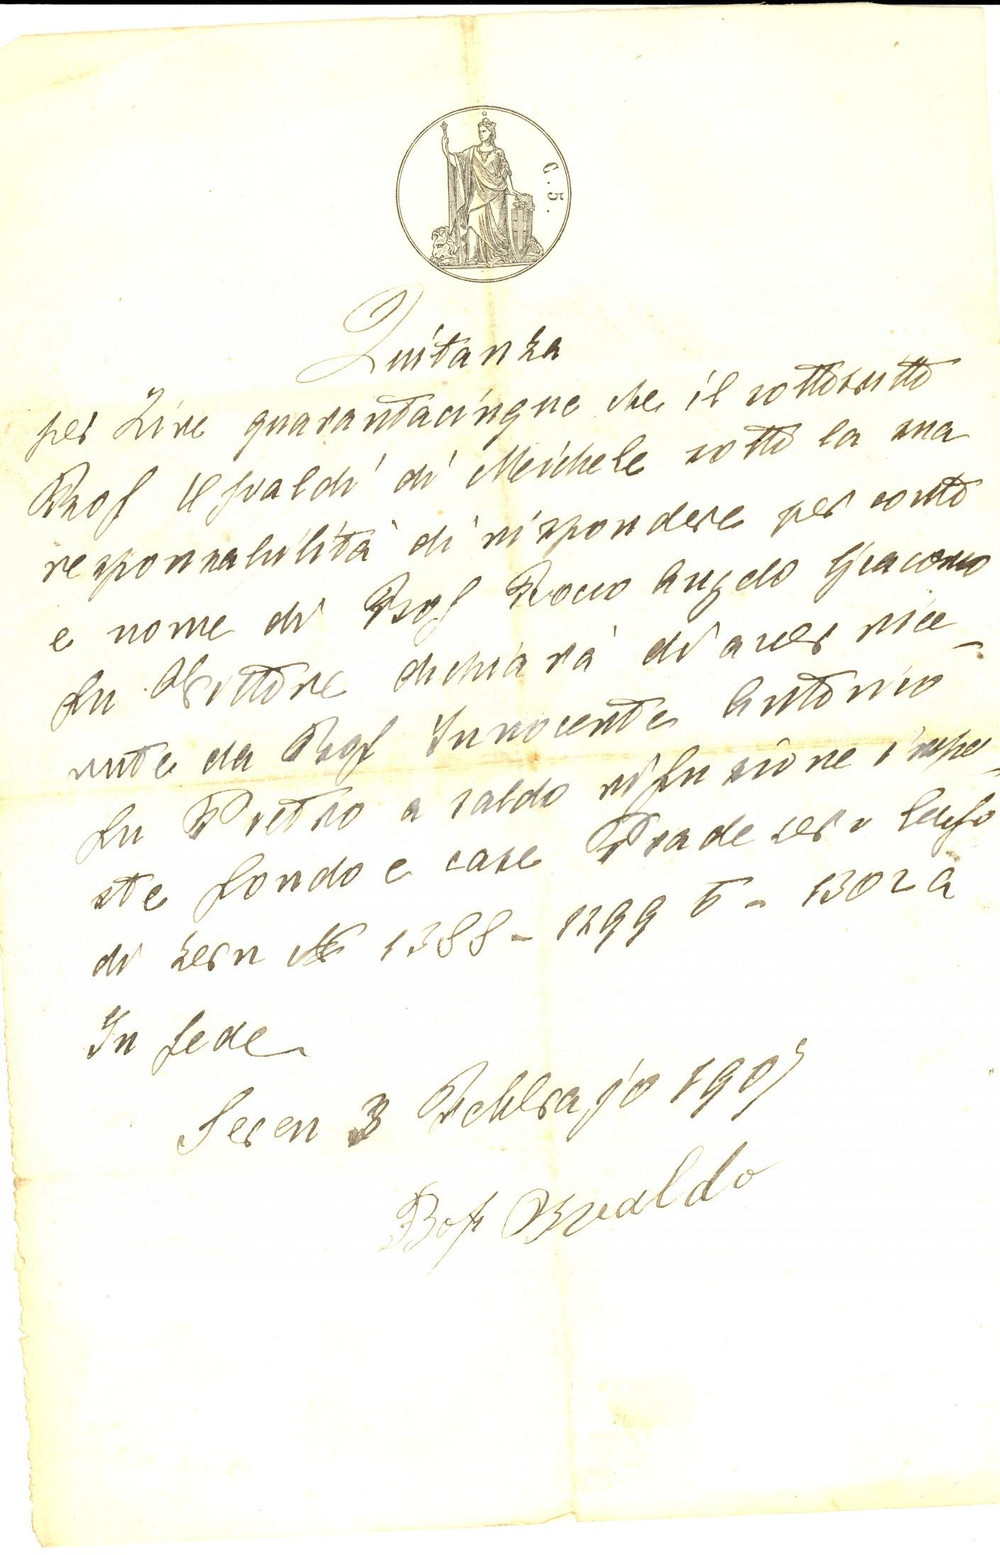 C. 5.
Quitanza
per Lire quarantacinque che il sottoscritto
Bof Osvaldi di Michele sotto la sua
responsabilità di rispondere per conto
e nome di Bof Rocco Angelo Giacomo
fu Vittore dichiara di aver rice-
vute da Bof Innocente Antonio
fu Pietro a saldo rifusione impo-
ste fondo e case Prade
di Seren N 1388 - 1299 b - 1302 a
In fede
Seren 3 Febbrajo 1905
Bof Osvaldo